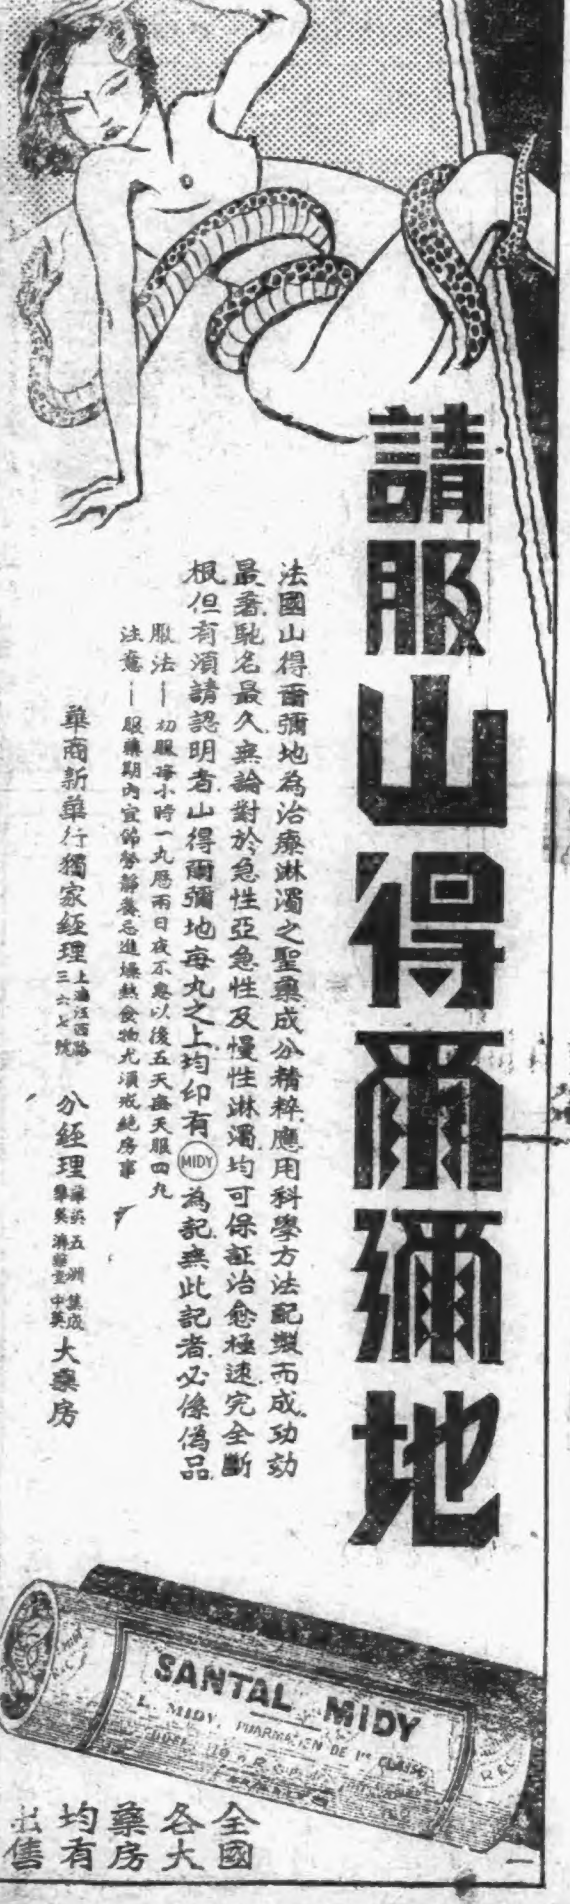 請服山得爾彌地
法國山得爾彌地為治療淋濁之聖藥成分精粹應用科學方法配製而成功効
最著馳名最久無論對於急性亞急性及慢性淋濁均可保証治愈極速完全斷
根但有須請認明者山得爾彌地每丸之上均印有MIDY為記無此記者必係偽品
服法—初服每小時一丸歷兩日夜不怠以後五天每天服四丸
注意—服藥期內宜節勞靜養忌進燥熱食物尤須戒絕房事
華商新華行獨家經理 上海江西路三六七號
分經理 五洲 集成 中英 大藥房
SANTAL MIDY
L. MIDY, PHARMACIEN DE 1re CLASSE
全國
各大
藥房
均有
出售